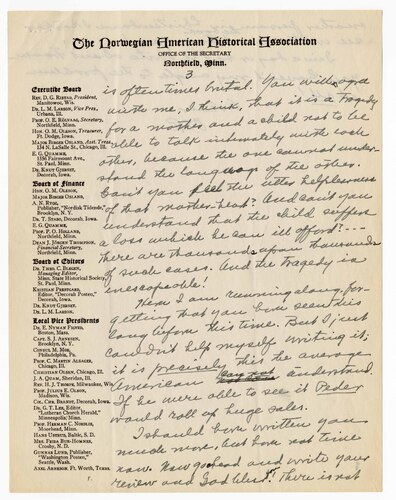 The Norwegian American Historical Association
OFFICE OF THE SECRETARY
Northfield, Minn.
3
Executive Board
REV. D. G. RISTAD, President,
Manitowoc, Wis.
DR. L. M. LARSON, Vice Pres.,
Urbana, Ill.
PROF. O. E. RÖLVAAG, Secretary,
Northfield, Minn.
HON. O. M. OLESON, Treasurer,
Ft. Dodge, Iowa.
MAJOR BIRGER OSLAND, Asst. Treas.
134 N. LaSalle St., Chicago, Ill.
E. G. QUAMME,
1536 Fairmount Ave.,
St. Paul, Minn.
DR. KNUT GJERSET,
Decorah, Iowa.
Board of Finance
HON. O. M. OLESON,
MAJOR BIRGER OSLAND,
A. N. RYGG,
Publisher, "Nordisk Tidende",
Brooklyn, N. Y.
DR. T. STABO, Decorah, Iowa.
E. G. QUAMME,
PROF. P. O. HOLLAND,
Northfield, Minn.
DEAN J. JÖRGEN THOMPSON,
Financial Secretary,
Northfield, Minn.
Board of Editors
DR. THEO. C. BLEGEN,
Managing Editor,
Minn. State Historical Society,
St. Paul, Minn.
KRISTIAN PRESTGARD,
Editor, "Decorah Posten",
Decorah, Iowa.
DR. KNUT GJERSET,
DR. L. M. LARSON.
Local Vice Presidents
Boston, Mass.
CAPT. S. J. ARNESEN,
Brooklyn, N. Y.
Philadelphia, Pa.
Chicago, Ill.
CHRISTIAN OLSEN, Chicago, Ill.
J. A. QUAM, Sheridan, Ill.
REV. H. J. THORPE, Milwaukee, Wis.
PROF. JULIUS E. OLSON,
Madison, Wis.
COL. CHR. BRANDT, Decorah, Iowa.
DR. G. T. LEE, Editor,
"Lutheran Church Herald",
Minneapolis, Minn.
Moorhead, Minn.
Crosby, N. D.
GUNNAR LUND, Publisher,
"Washington Posten",
Seattle, Wash.
Ft. Worth, Texas.
is oftentimes brutal. You will agree
with me, I think, that it is a tragedy
for a mother and a child not to be
able to talk intimately with each
other, because the one cannot under-
stand the language of the other.
Can't you feel the utter helplessness
of that mother-heart? And can't you
understand that the child suffers
a loss which he can ill afford? ---
There are thousands upon thousands
of such cases. And the tragedy is
inescapable!
Here I am running along, for-
getting that you have seen this
long before this time. But I just
couldn't help myself writing it;
it is precisely this the average
American understand.
If he were able to see it Peder
would roll up huge sales.
I should have written you
much more, but have not time
now. Now go ahead and write your
review and God bless! There is not